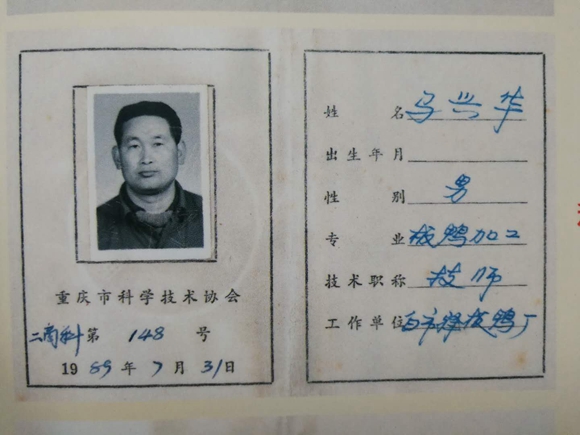 重庆市科学技术协会
二商科第 148 号
1989年7月31日
姓名 马兴华
出生年月
性别 男
专业 板鸭加工
技术职称 技师
工作单位 白市驿板鸭厂